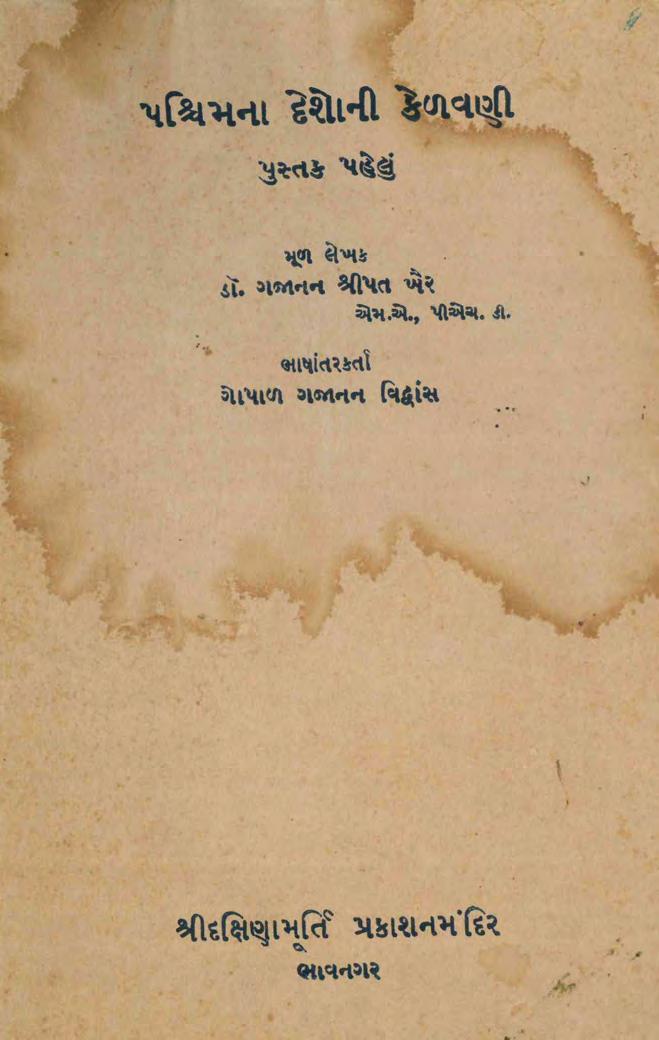 પશ્ચિમના દેશોની કેળવણી
પુસ્તક પહેલું
મૂળ લેખક
ડૉ. ગજાનન શ્રીપત ખૈર
એમ.એ., પીએચ. ડી.
ભાષાંતરકર્તા
ગોપાળ ગજાનન વિદ્વાંસ
શ્રીદક્ષિણામૂર્તિ પ્રકાશનમંદિર
ભાવનગર